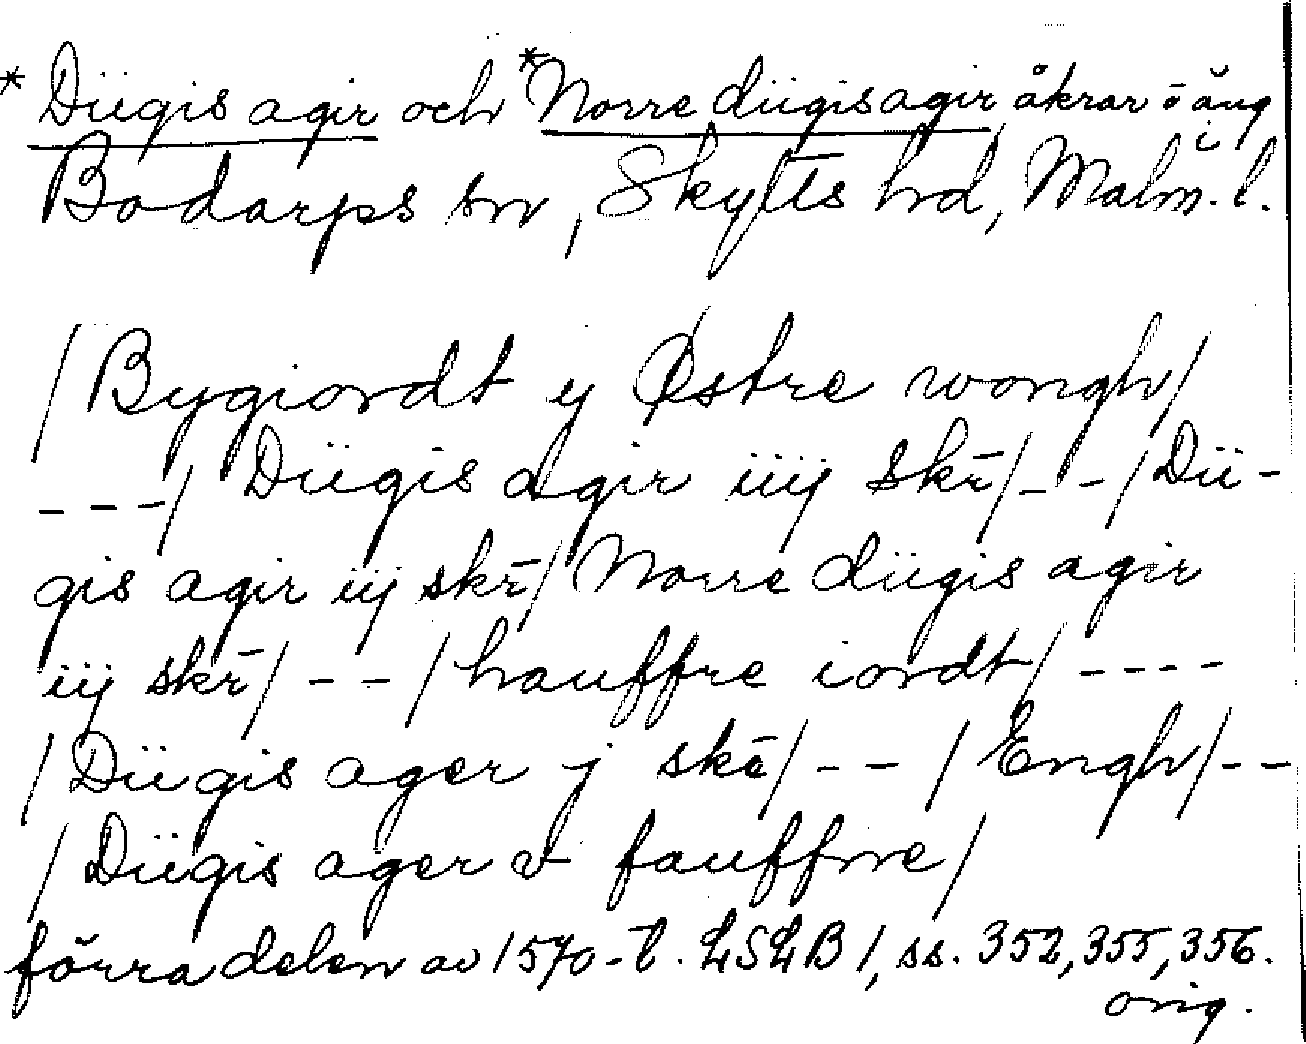 * Dügis agir och *Norre dügisagir åkrar o äng i
Bodarps sn, Skytts hd, Malm. l.
/Bygiordt y Østre wongh/
---/ Dügis agir iiij skr̄/--/Dü-
gis agir iij skr̄/Norre dügis agir
iij skr̄/--/hauffre iordt/----
/Dügis ager j skē/--/Engh/--
/Dügis ager et fauffne/
förra delen av 1570-t. LSLB 1, ss. 352, 355, 356.
orig.